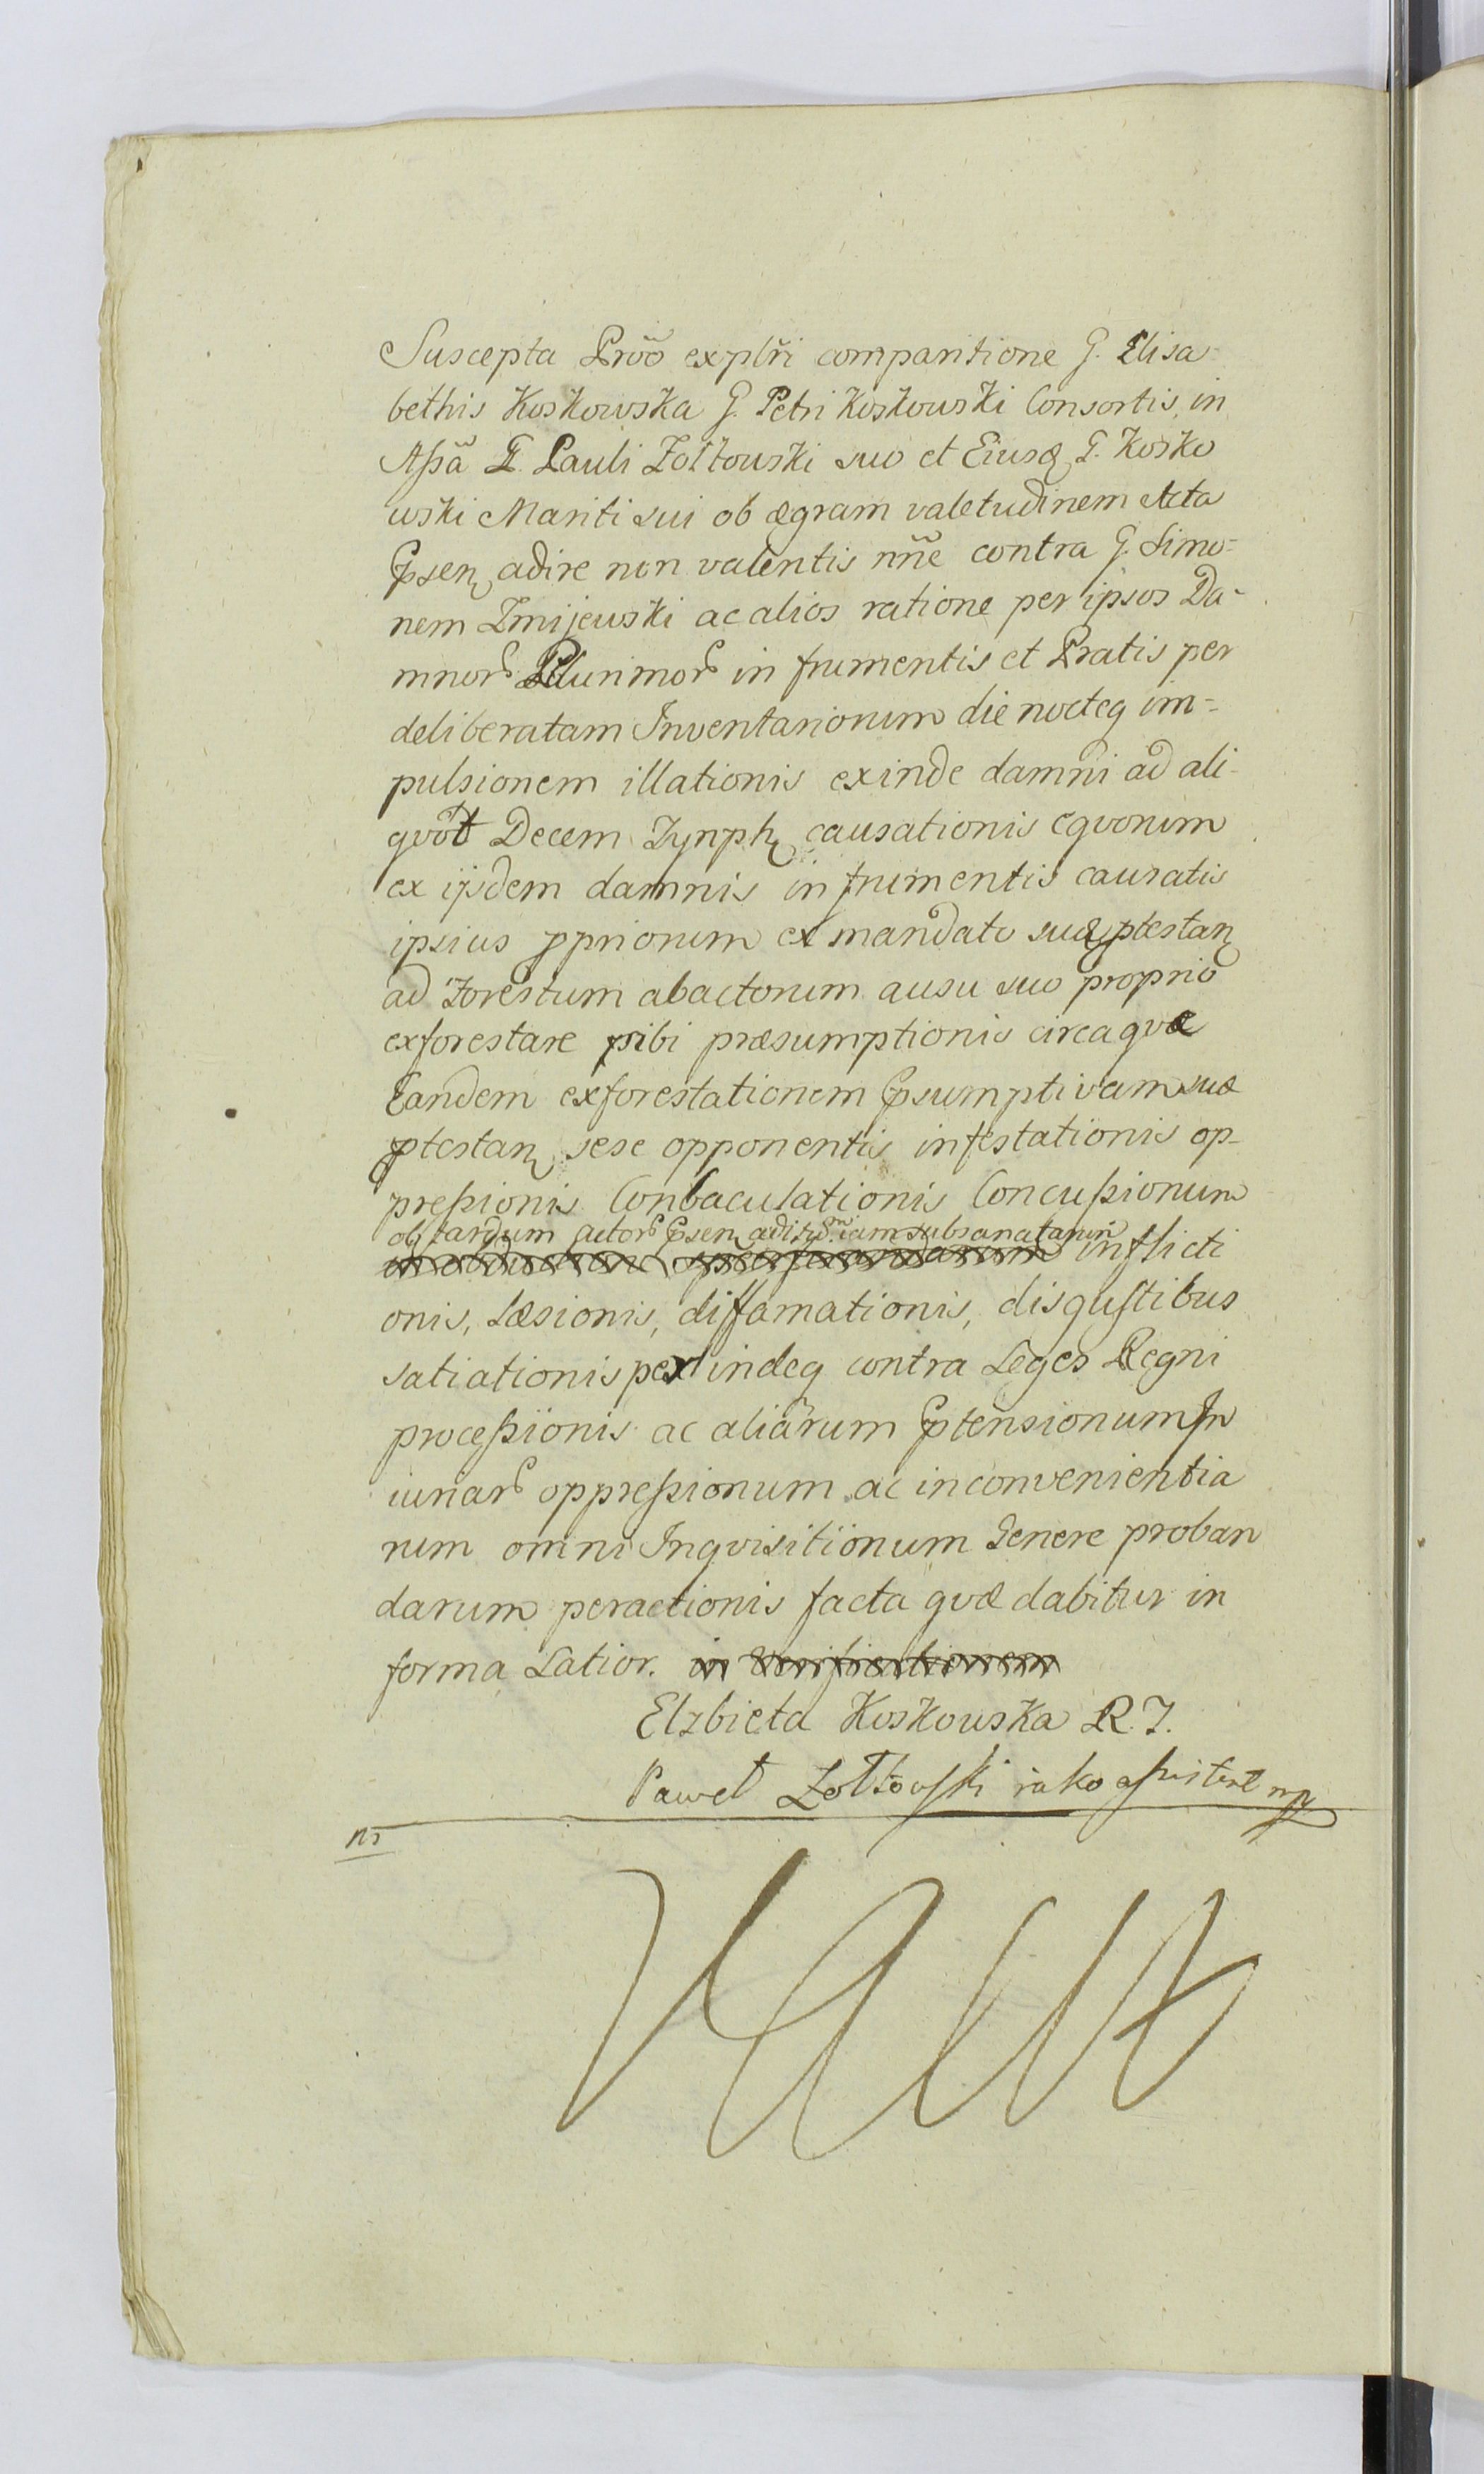 Suscepta Prõõ explr̃i comparitione G. Elisa-
bethis Koskowska G. Petri Koskowski Consortis, in
Aßã G. Pauli Zołtowski suo et Eiusq G. Kosko
wski Mariti sui ob ægram valetudinem Acta
Psen adire non valentis nñe contra G. Simo-
nem Zmijewski ac alios ratione per ipsos Da-
mnor Plurimor in frumentis et Pratis per
deliberatam Inventariorum die nocteq im-
pulsionem illationis exinde damni ad ali-
qvot Decem Tynph causationis Eqvorum
ex ijsdem damnis in frumentis causatis
ipsius ppriorum ex mandato suæ ptestan
ad Forestum abactorum ausu suo proprio
exforestare sibi præsumptionis circa qvæ
Eandem exforestationem Psumptivam suæ
ptestan sese opponentis infestationis op-
preßionis Conbaculationis Concußionum
ob tardum actor Psen aditum iam subsanatarum
inflicti
onis, Læsionis, diffamationis, disgustibus
satiationis per indeq contra Leges Regni
proceßionis ac aliarum Ptensionum In
iuriar oppreßionum ac inconvenientia
rum omni Inqvisitionum Genere proban
darum peractionis facta qvæ dabitur in
forma Latior. in Verificationem
Elzbieta Koskowska R. J.
Paweł Zołtowski iako aßistent mp